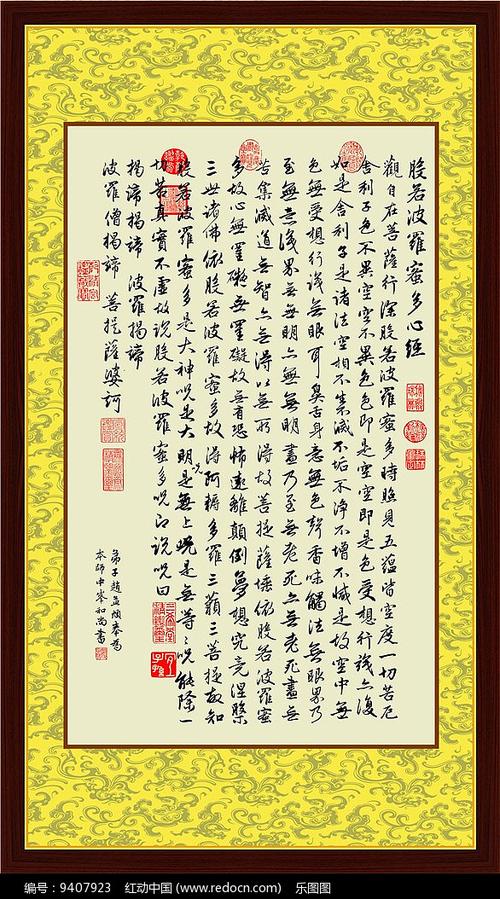 般若波羅蜜多心經
觀自在菩薩行深般若波羅蜜多時照見五蘊皆空度一切苦厄
舍利子色不異空空不異色色即是空空即是色受想行識亦復
如是舍利子是諸法空相不生滅不垢不淨不增不減是故空中無
色無受想行識無眼耳鼻舌身意無色聲香味觸法無眼界乃
至無意識界無無明亦無無明盡乃至無老死亦無老死盡無
苦集滅道無智亦無得以無所得故菩提薩埵依般若波羅蜜
多故心無罣礙無罣礙故無有恐怖遠離顛倒夢想究竟涅槃
三世諸佛依般若波羅蜜多故得阿耨多羅三藐三菩提故知
般若波羅蜜多是大神咒是大明咒是無上咒是無等等咒能除一
切苦真實不虛故說般若波羅蜜多咒即說咒曰
揭諦揭諦 波羅揭諦
波羅僧揭諦 菩提薩婆訶
弟子趙孟頫奉為
本師中峯和尚書
编号：9407923 红动中国 (www.redocn.com) 乐图图